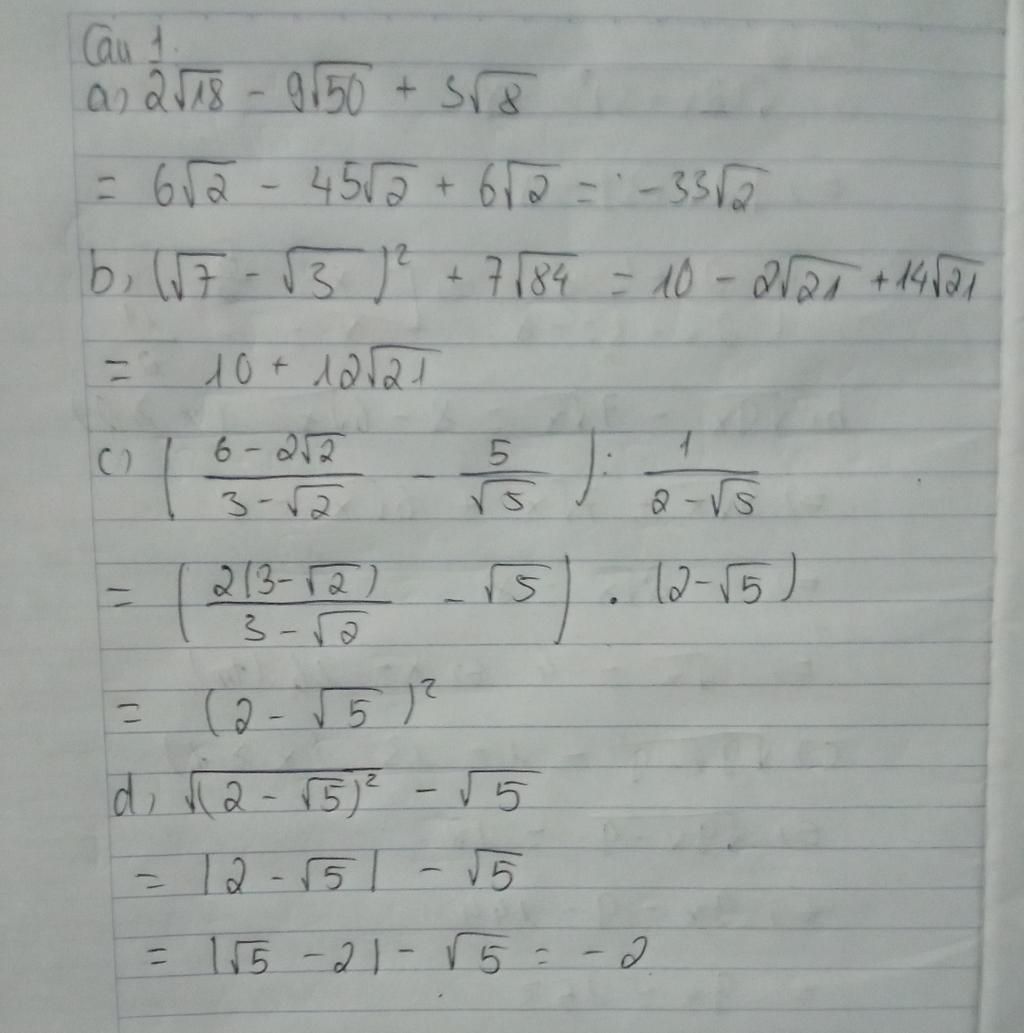 Câu 1.
a, 2√18 - 9√50 + 3√8
= 6√2 - 45√2 + 6√2 = -33√2
b, (√7 - √3)² + 7√84 = 10 - 2√21 + 14√21
= 10 + 12√21
c, ( (6 - 2√2)/(3 - √2) - 5/√5 ) : 1/(2 - √5)
= ( 2(3 - √2)/(3 - √2) - √5 ) . (2 - √5)
= (2 - √5)²
d, √(2 - √5)² - √5
= |2 - √5| - √5
= |√5 - 2| - √5 = -2